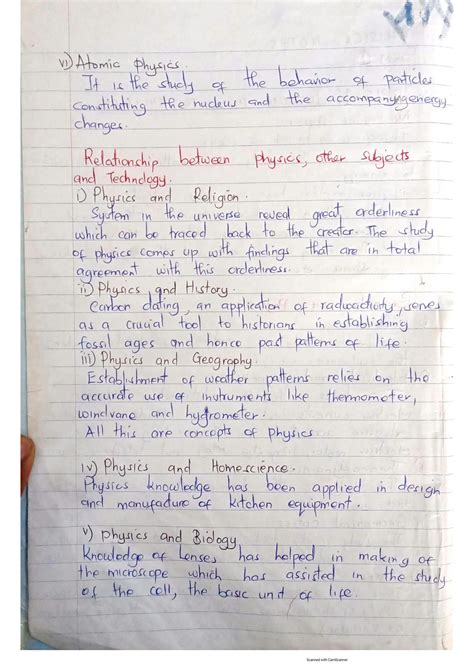 vi) Atomic physics.
It is the study of the behavior of particles
constituting the nucleus and the accompanying energy
changes.
Relationship between physics, other subjects
and Technology.
i) Physics and Religion.
System in the universe reveal great orderliness
which can be traced back to the creator. The study
of physics comes up with findings that are in total
agreement with this orderliness.
ii) Physics and History.
Carbon dating, an application of radioactivity, serves
as a crucial tool to historians in establishing
fossil ages and hence past patterns of life.
iii) Physics and Geography.
Establishment of weather patterns relies on the
accurate use of instruments like thermometer,
windvane and hygrometer.
All this are concepts of physics.
iv) Physics and Homescience.
Physics knowledge has been applied in design
and manufacture of kitchen equipment.
v) Physics and Biology
Knowledge of Lenses has helped in making of
the microscope which has assisted in the study
of the cell, the basic unit of life.
Scanned with CamScanner